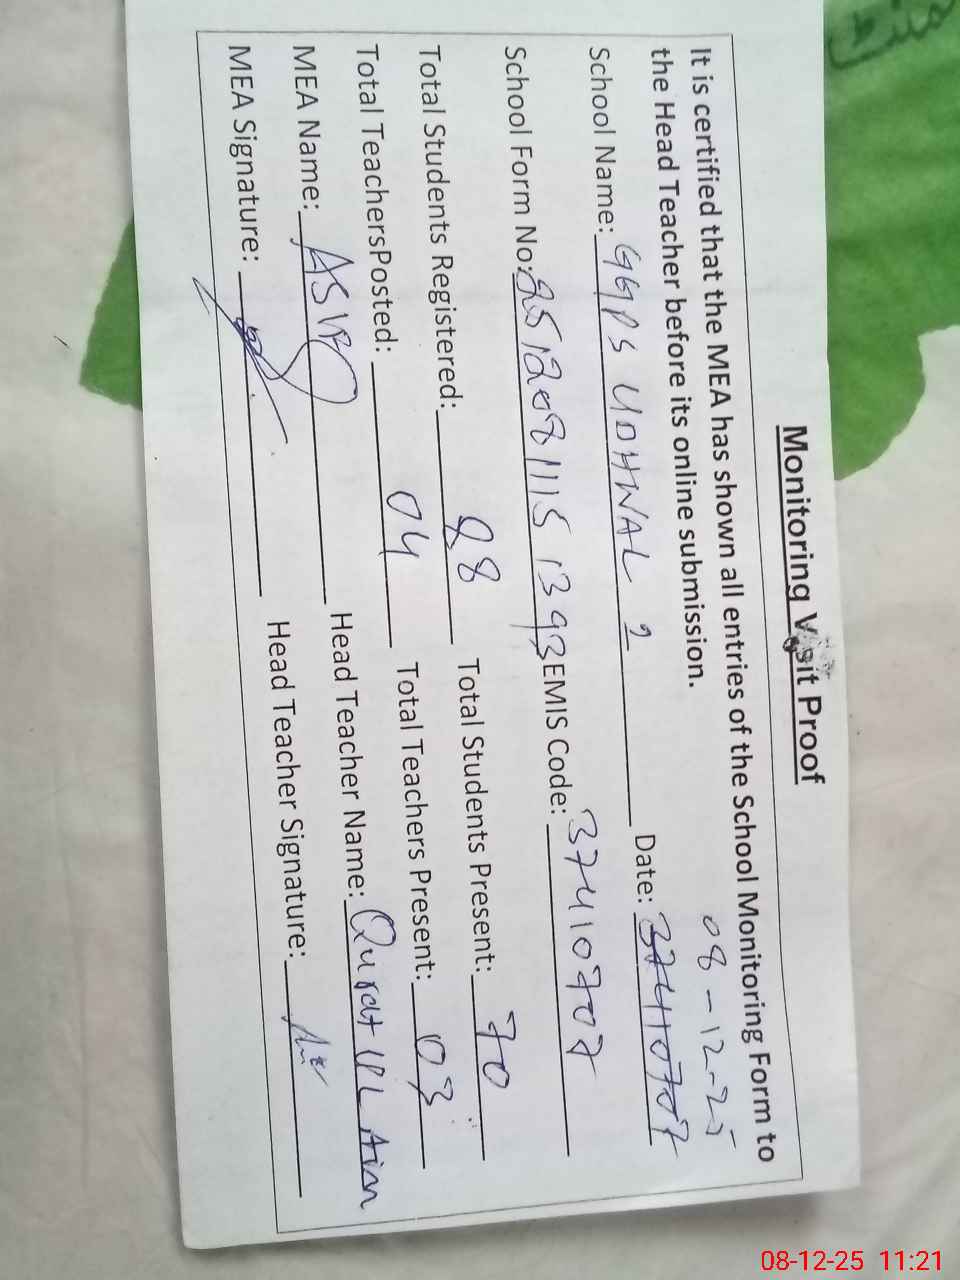 Monitoring Visit Proof
It is certified that the MEA has shown all entries of the School Monitoring Form to
the Head Teacher before its online submission.
08-12-25
School Name: GGPS UOHWAL 2 Date: 37410707
School Form No: 2512081115 1393 EMIS Code: 37410707
Total Students Registered: 88 Total Students Present: 70
Total TeachersPosted: 04 Total Teachers Present: 03
MEA Name: Head Teacher Name: Qurat UL Ain
MEA Signature: Head Teacher Signature:
08-12-25 11:21